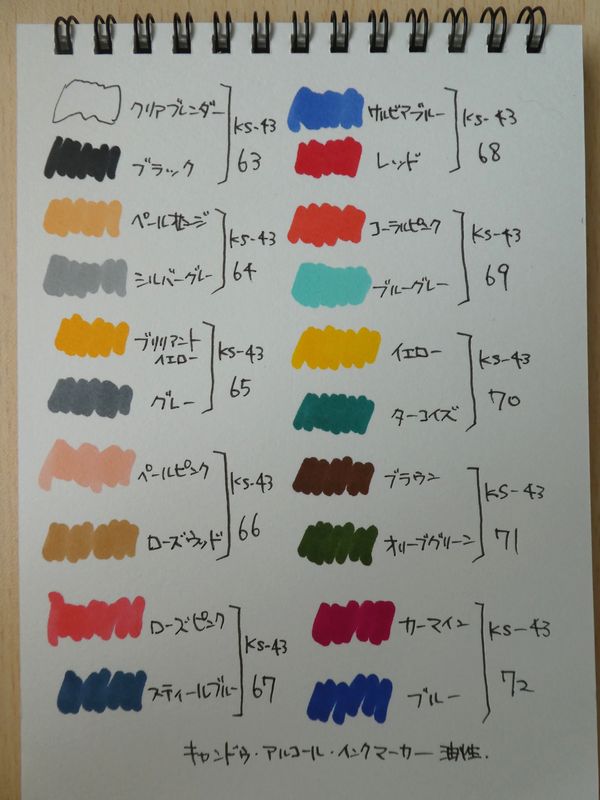 クリアブレンダー
ブラック
KS-43
63
ペールオレンジ
シルバーグレー
KS-43
64
ブリリアント
イエロー
グレー
KS-43
65
ペールピンク
ローズウッド
KS-43
66
ローズピンク
スティールブルー
KS-43
67
サルビアブルー
レッド
KS-43
68
コーラルピンク
ブルーグレー
KS-43
69
イエロー
ターコイズ
KS-43
70
ブラウン
オリーブグリーン
KS-43
71
カーマイン
ブルー
KS-43
72
キャンドゥ・アルコール・インクマーカー 油性.